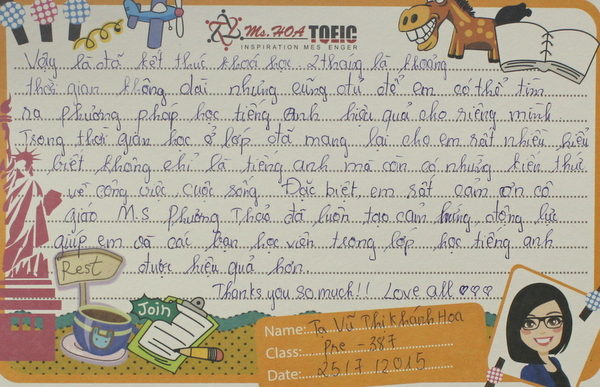 Ms. HOA TOEIC
INSPIRATION MES ENGER
Vậy là đã kết thúc khoá học 2 tháng là khoảng
thời gian không dài nhưng cũng đủ để em có thể tìm
ra phương pháp học tiếng Anh hiệu quả cho riêng mình.
Trong thời gian học ở lớp đã mang lại cho em rất nhiều hiểu
biết không chỉ là tiếng anh mà còn có những kiến thức
về công việc, cuộc sống. Đặc biệt em rất cảm ơn cô
giáo M.S Phương Thảo đã luôn tạo cảm hứng, động lực
giúp em và các bạn học viên trong lớp học tiếng anh
được hiệu quả hơn.
Thanks you so much!! Love all ♡♡♡
Rest
Join
Name: Tạ Vũ Thị Khánh Hoa
Class: Pre - 387
Date: 25/7/2015